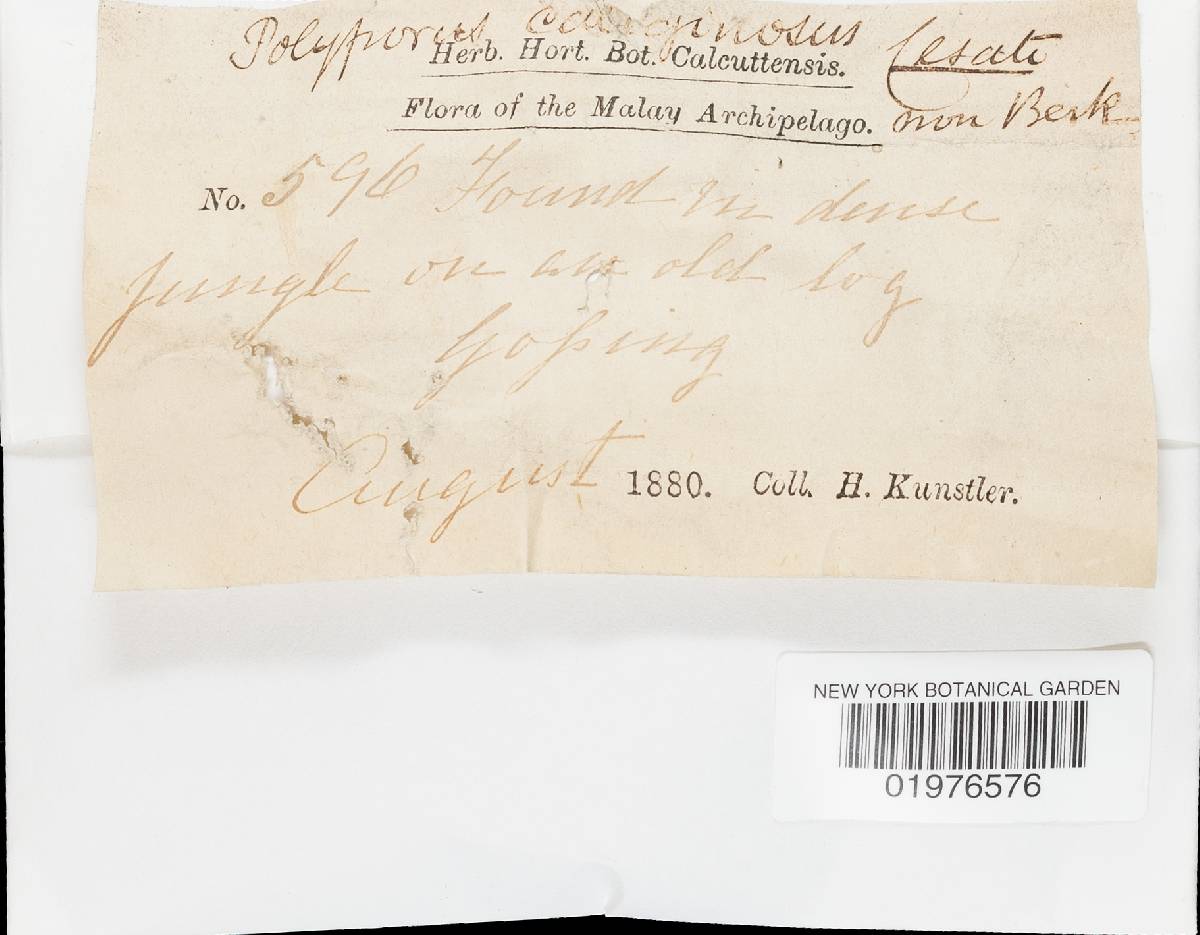 Polyporus caliginosus Cesati
Herb. Hort. Bot. Calcuttensis.
non Berk
Flora of the Malay Archipelago.
No. 596 Found in dense
jungle on an old log
Goping
August 1880. Coll. H. Kunstler.
NEW YORK BOTANICAL GARDEN
01976576